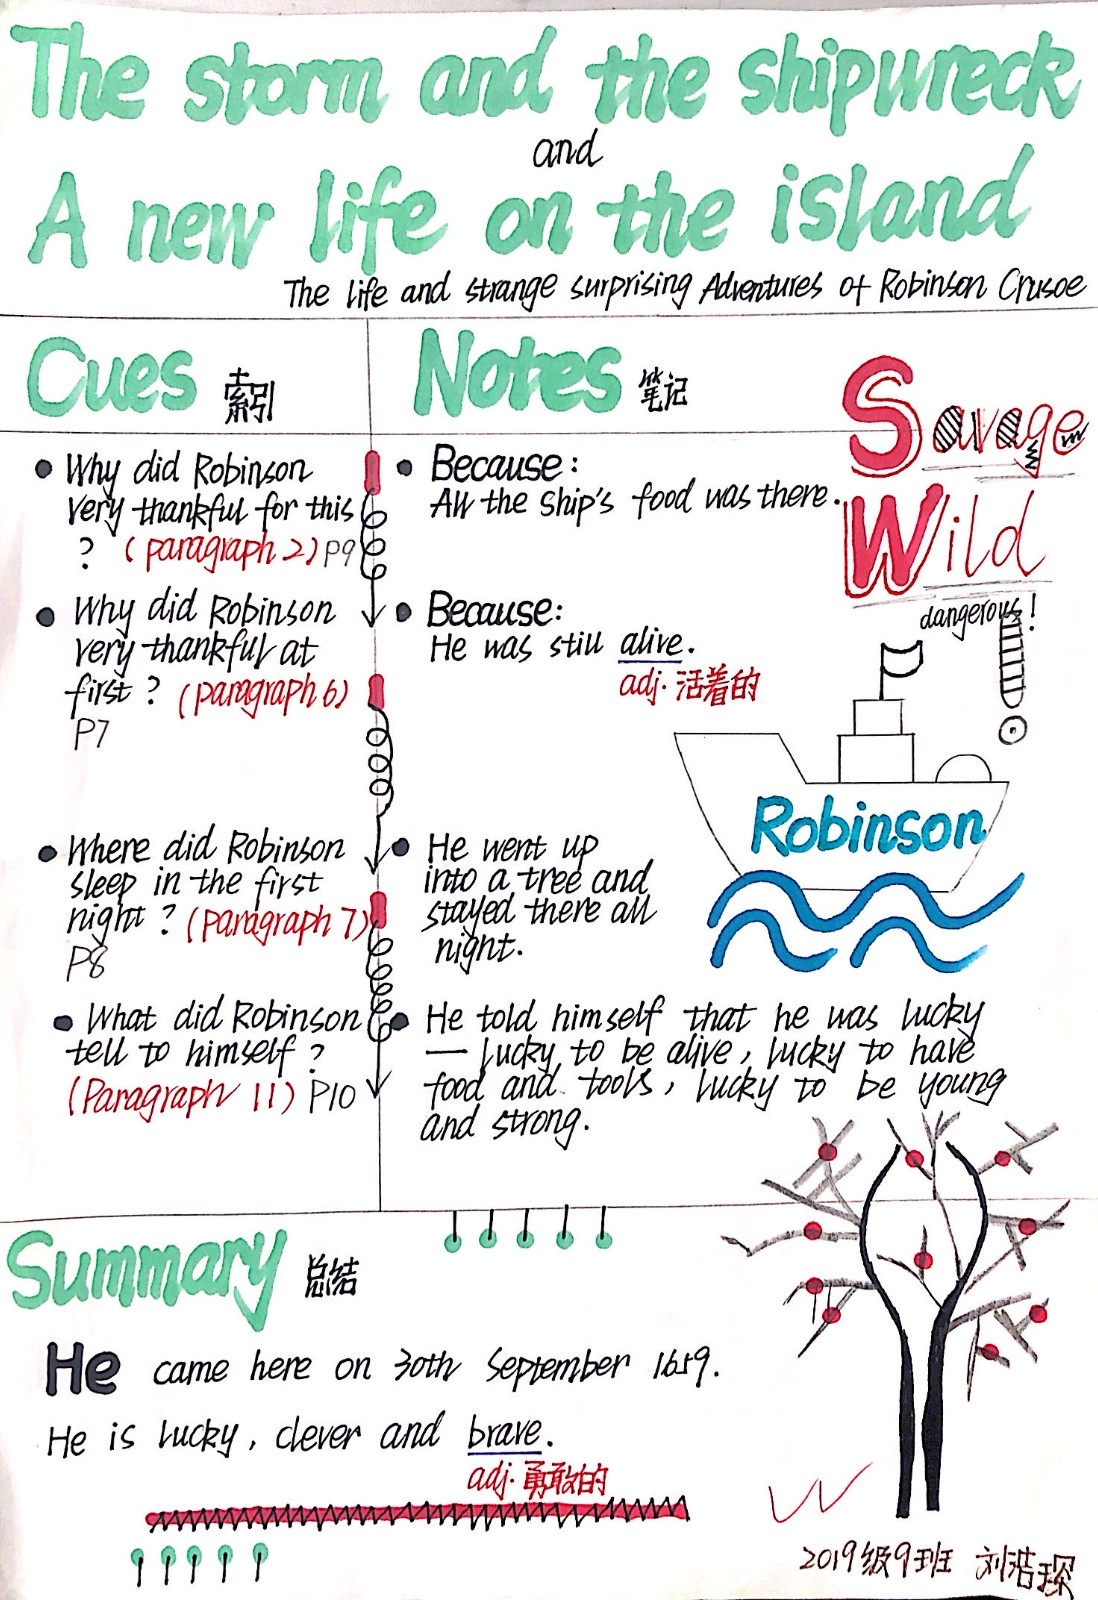 The storm and the shipwreck
and
A new life on the island
The life and strange surprising Adventures of Robinson Crusoe
Cues 索引
Why did Robinson
very thankful for this
? (paragraph 2) P9
Why did Robinson
very thankful at
first? (paragraph 6)
P7
Where did Robinson
sleep in the first
night? (paragraph 7)
P8
What did Robinson
tell to himself?
(Paragraph 11) P10
Notes 笔记
Because:
All the ship's food was there.
Because:
He was still alive.
adj. 活着的
He went up
into a tree and
stayed there all
night.
He told himself that he was lucky
— lucky to be alive, lucky to have
food and tools, lucky to be young
and strong.
Savage
Wild
dangerous!
Robinson
Summary 总结
He came here on 30th September 1659.
He is lucky, clever and brave.
adj. 勇敢的
2019级9班 刘浩琛